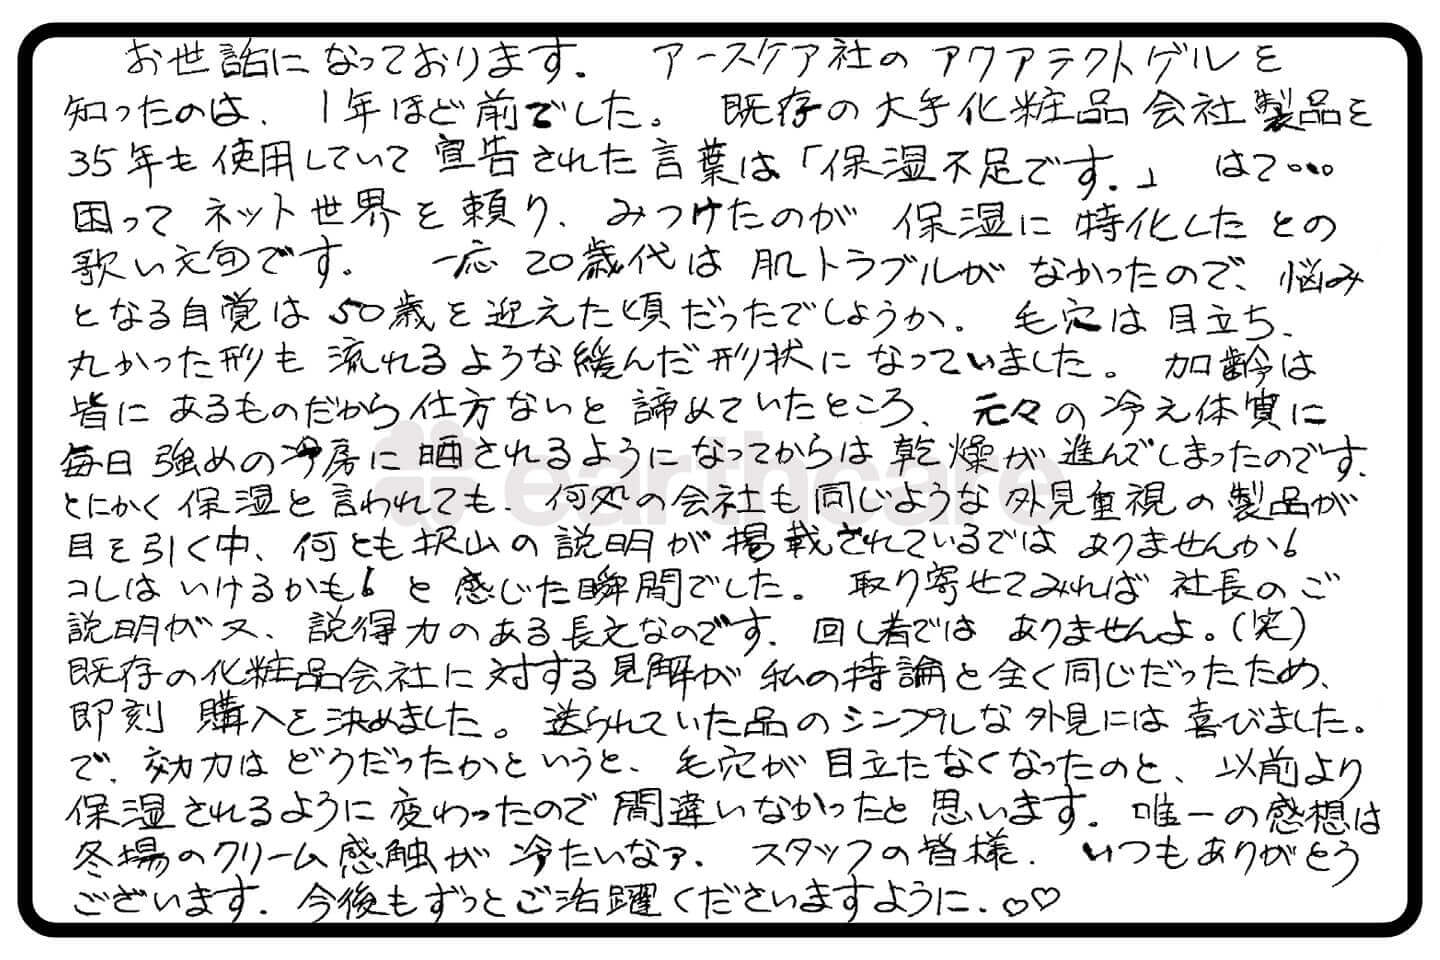 お世話になっております. アースケア社のアクアテクトゲルを
知ったのは、1年ほど前でした。 既存の大手化粧品会社製品を
35年も使用していて宣告された言葉は「保湿不足です.」 はて…
困ってネット世界を頼り、みつけたのが保湿に特化したとの
歌い文句です. 一応20歳代は肌トラブルがなかったので、悩み
となる自覚は50歳を迎えた頃だったでしょうか。 毛穴は目立ち、
丸かった形も流れるような緩んだ形状になっていました。 加齢は
皆にあるものだから仕方ないと諦めていたところ、元々の冷え体質に
毎日強めの冷房に晒されるようになってからは乾燥が進んでしまったのです.
とにかく保湿と言われても、何処の会社も同じような外見重視の製品が
目を引く中、何とも沢山の説明が掲載されているではありませんか!
コレはいけるかも!と感じた瞬間でした。 取り寄せてみれば社長のご
説明が又、説得力のある長文なのです. 回し者ではありませんよ。(笑)
既存の化粧品会社に対する見解が私の持論と全く同じだったため、
即刻購入を決めました。 送られていた品のシンプルな外見には喜びました。
で、効力はどうだったかというと、毛穴が目立たなくなったのと、以前より
保湿されるように変わったので間違いなかったと思います. 唯一の感想は
冬場のクリーム感触が冷たいなァ. スタッフの皆様. いつもありがとう
ございます. 今後もずっとご活躍くださいますように.♡♡
earthcare